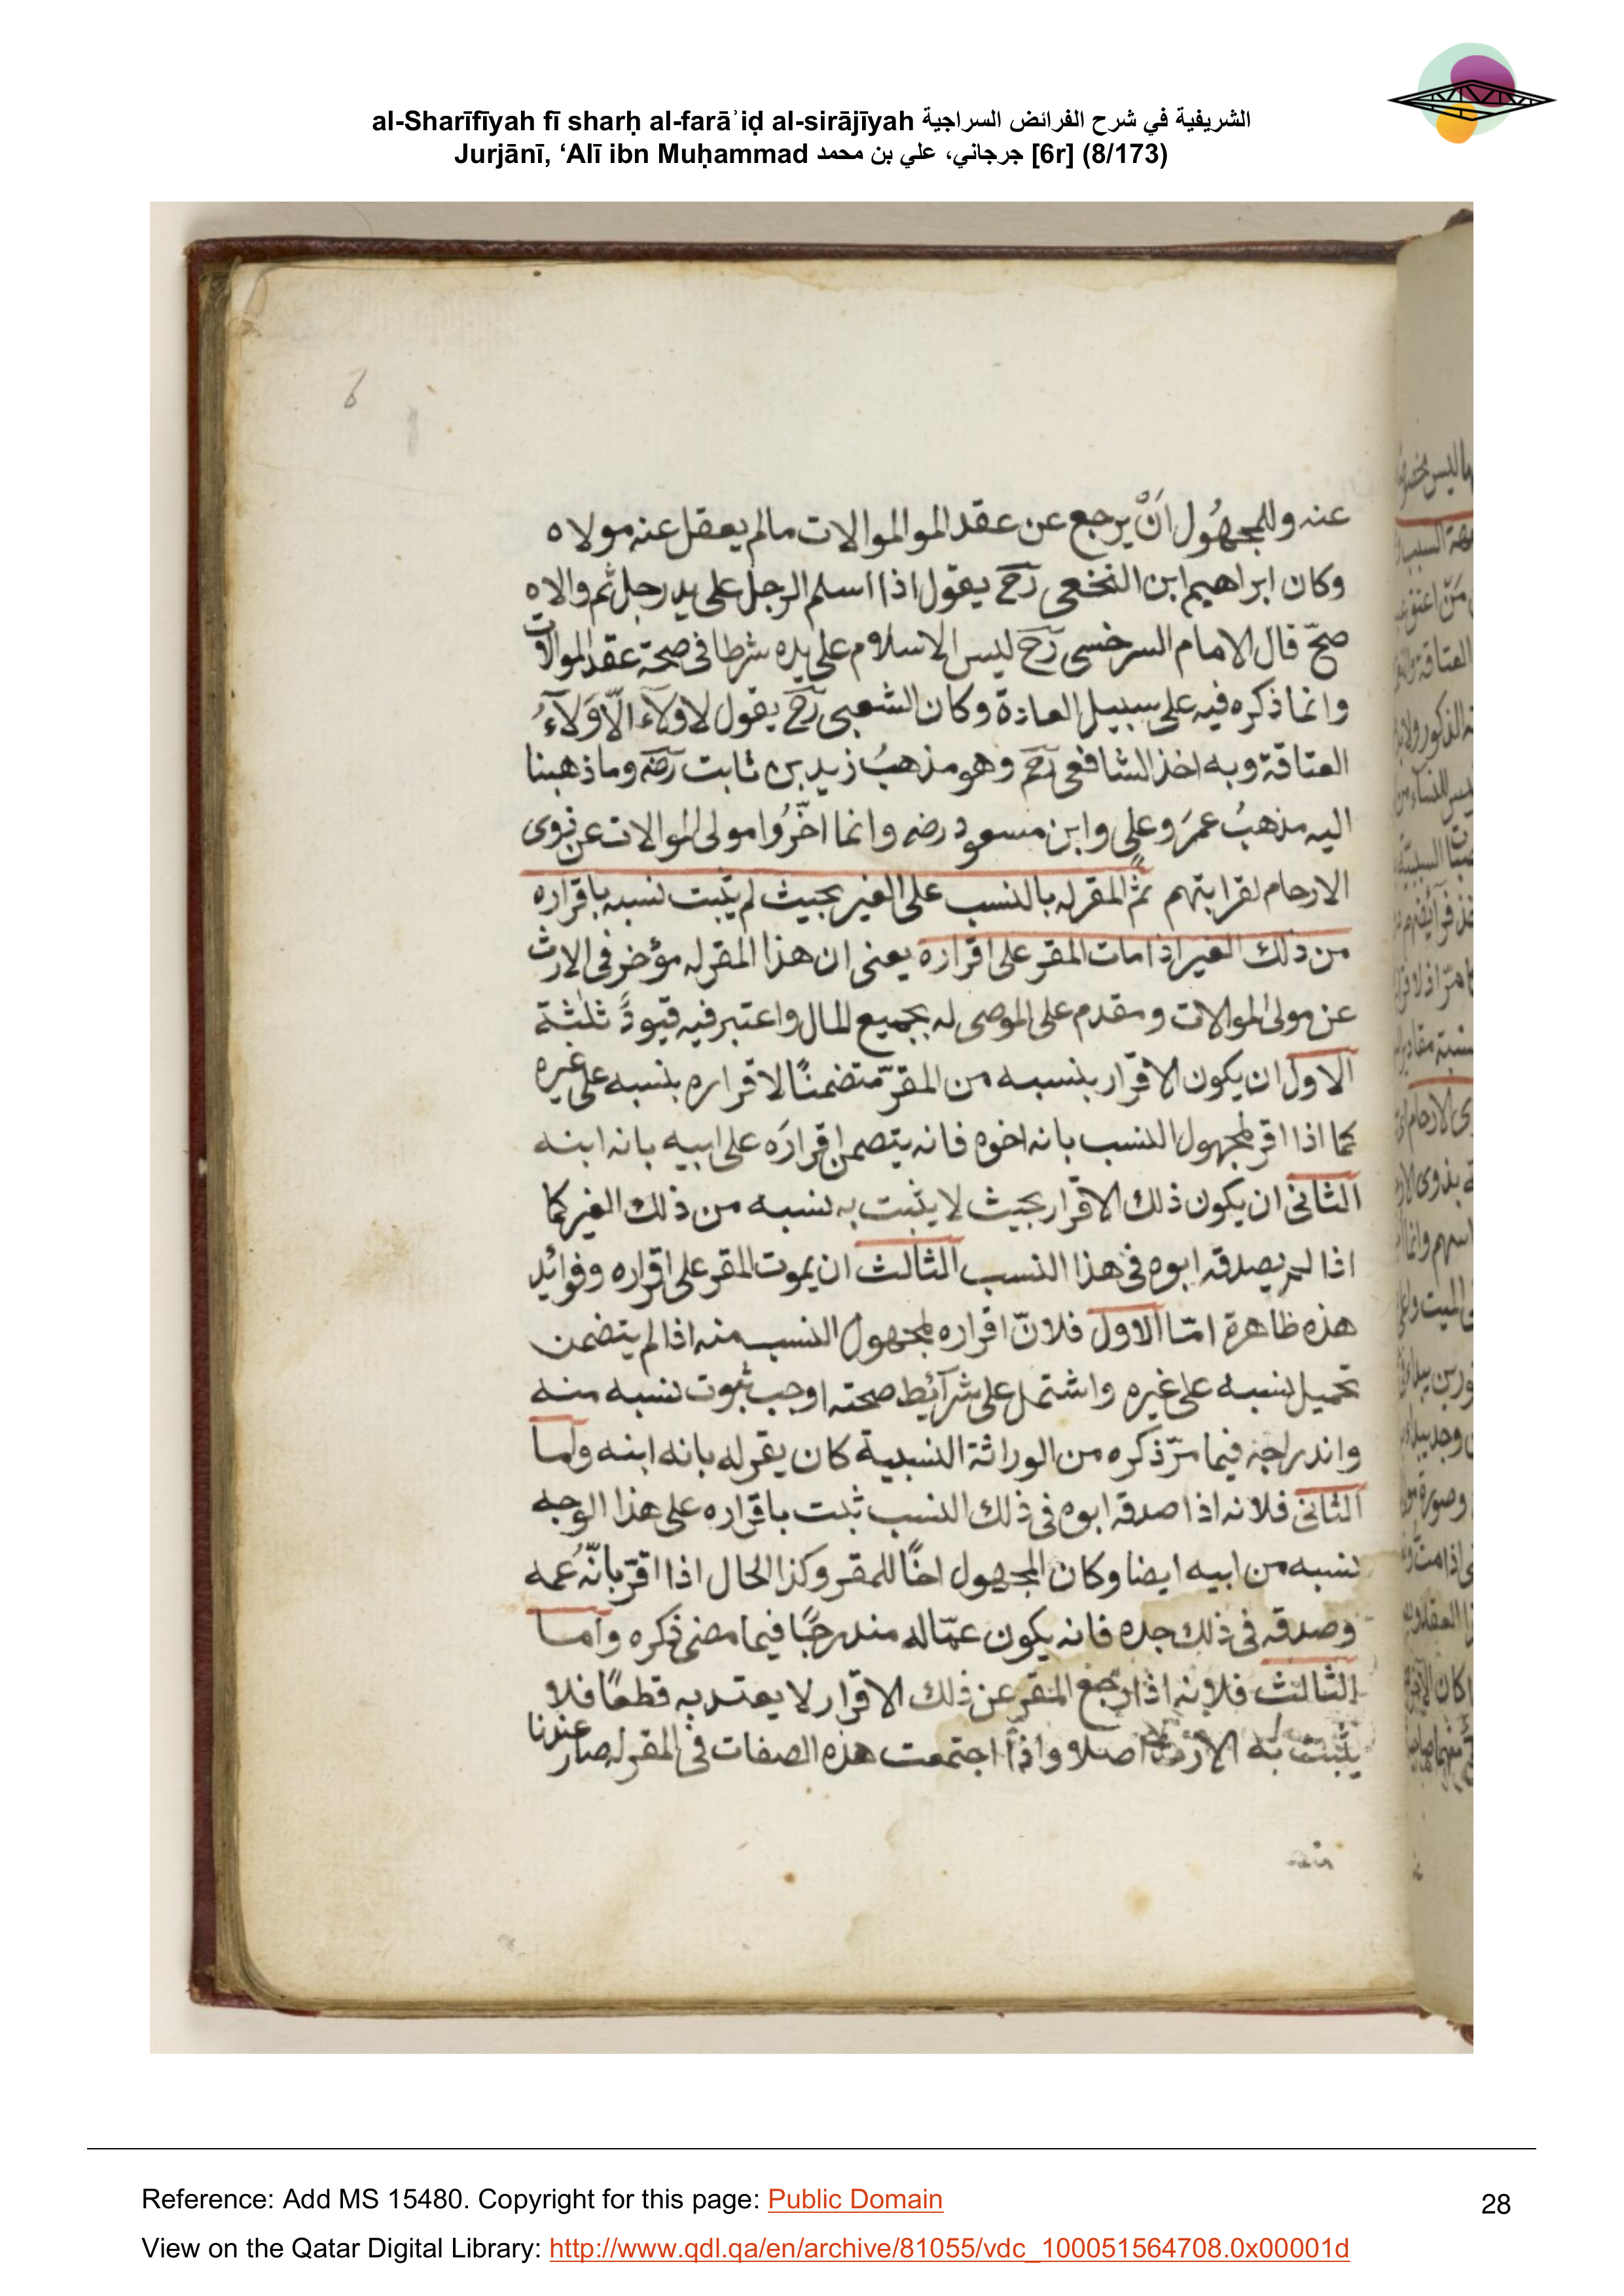 al-Sharīfīyah fī sharḥ al-farāʾiḍ al-sirājīyah الشريفية في شرح الفرائض السراجية
Jurjānī, ‘Alī ibn Muḥammad جرجاني، علي بن محمد [6r] (8/173)
6
عنه وللمجهُول اَنْ يرجع عن عقد الموالموالات مالم يعقل عنه مولاه
وكان ابراهيم ابن النخعى رَحَ يقول اذا اسلم الرجل على يد رجل ثم والاه
صحّ قال الامام السرخسى رَحَ ليس الاسلام على يده شرطا فى صحة عقد الموالات
وانما ذكره فيه على سبيل العادة وكان الشعبى رَحَ يقول لا ولَآء الّا وَلَآءُ
العتاقة وبه اخذ الشافعى رَحَ وهو مذهبُ زيد بن ثابت رَضَه وما ذهبنا
اليه مذهبُ عمَر وعلى وابن مسعود رضه وانما اخّرُوا مولى الموالات عن ذوى
الارحام لقرابتهم ثمّ المقر له بالنسب على الغير بحيث لم يثبت نسبه باقراره
من ذلك الغير اذا مات المقر على اقراره يعنى ان هذا المقر له مؤخر فى الارث
عن مولى الموالات ومقدم على الموصى له بجميع المال واعتبر فيه قيودً ثلٰثة
الاول ان يكون الاقرار بنسبه من المقرّ متضمنًا لاقراره بنسبه على غيره
كما اذا اقر لمجهول النسب بانه اخوه فانه يتضمن اقرارَه على ابيه بانه ابنه
الثانى ان يكون ذلك الاقرار بحيث لا يثبت به نسبه من ذلك الغير كما
اذا لم يصدقه ابوه فى هذا النسب الثالث ان يموت المقر على اقراره وفوائد
هذه ظاهرة امّا الاول فلانّ اقراره لمجهول النسب منه اذا لم يتضمن
تحميل نسبه على غيره واشتمل على شرآئط صحته اوجب ثبوت نسبه منه
واندراجه فيما مرّ ذكره من الوراثة النسبية كان يقر له بانه ابنه واما
الثانى فلانه اذا صدقه ابوه فى ذلك النسب ثبت باقراره على هذا الوجه
نسبه من ابيه ايضا وكان المجهول اخًا للمقر وكذا الحال اذا اقرّ بانّهُ عمه
وصدقه فى ذلك جده فانه يكون عمّا له مندرجًا فيما مضى ذكره واما
الثالث فلانه اذا رجع المقر عن ذلك الاقرار لا يعتد به قطعًا فلا
يثبت به الارث اصلا واذا اجتمعت هذه الصفات فى المقر له صار عندنا
Reference: Add MS 15480. Copyright for this page: Public Domain
28
View on the Qatar Digital Library: http://www.qdl.qa/en/archive/81055/vdc_100051564708.0x00001d